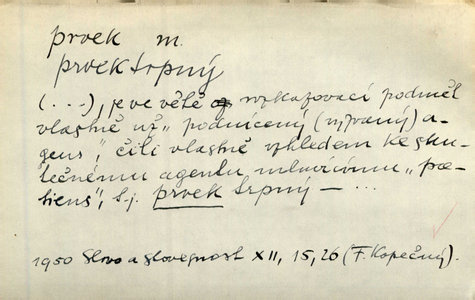 prvek m.
prvek trpný
(...), je ve větě rozkazovací podmět
vlastně už „podnícený (vyzvaný) a-
gens", čili vlastně vzhledem ke sku-
tečnému agentu mluvícímu „pa-
tiens", t.j. prvek trpný — ...
1950 Slovo a slovesnost XII, 15, 26 (F. Kopečný).